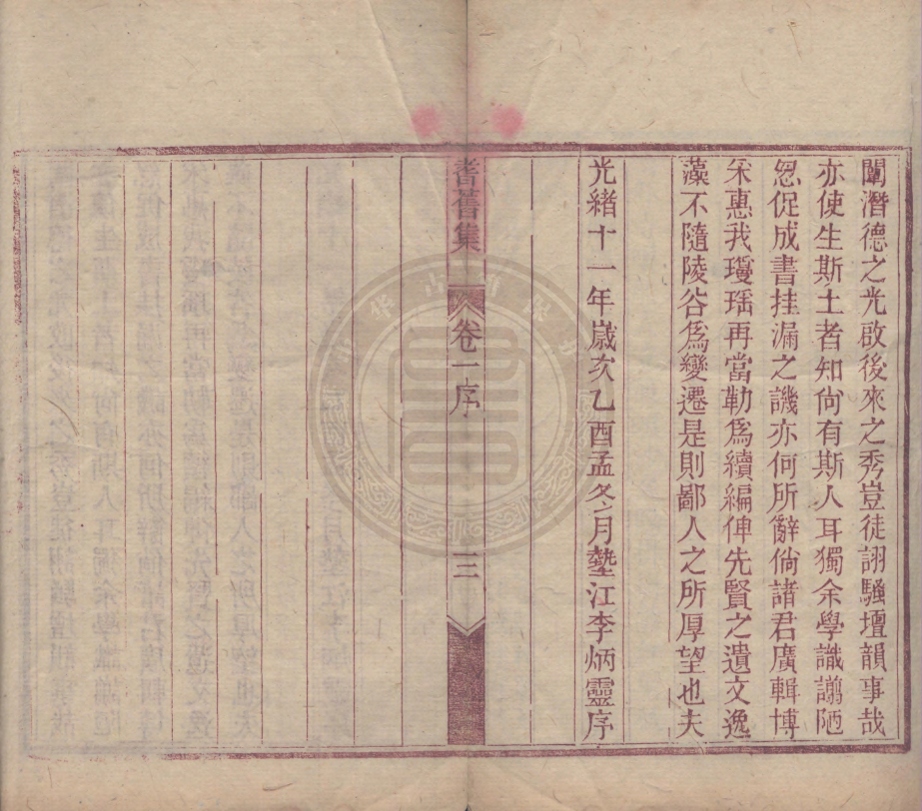 闡潛德之光啟後來之秀豈徒詡騷壇韻事哉
亦使生斯土者知尙有斯人耳獨余學識譾陋
悤促成書挂漏之譏亦何所辭倘諸君廣輯博
采惠我瓊瑤再當勒爲續編俾先賢之遺文逸
藻不隨陵谷爲變遷是則鄙人之所厚望也夫
光緒十一年歲亥乙酉孟冬月墊江李炳靈序
耆舊集 卷一序 三